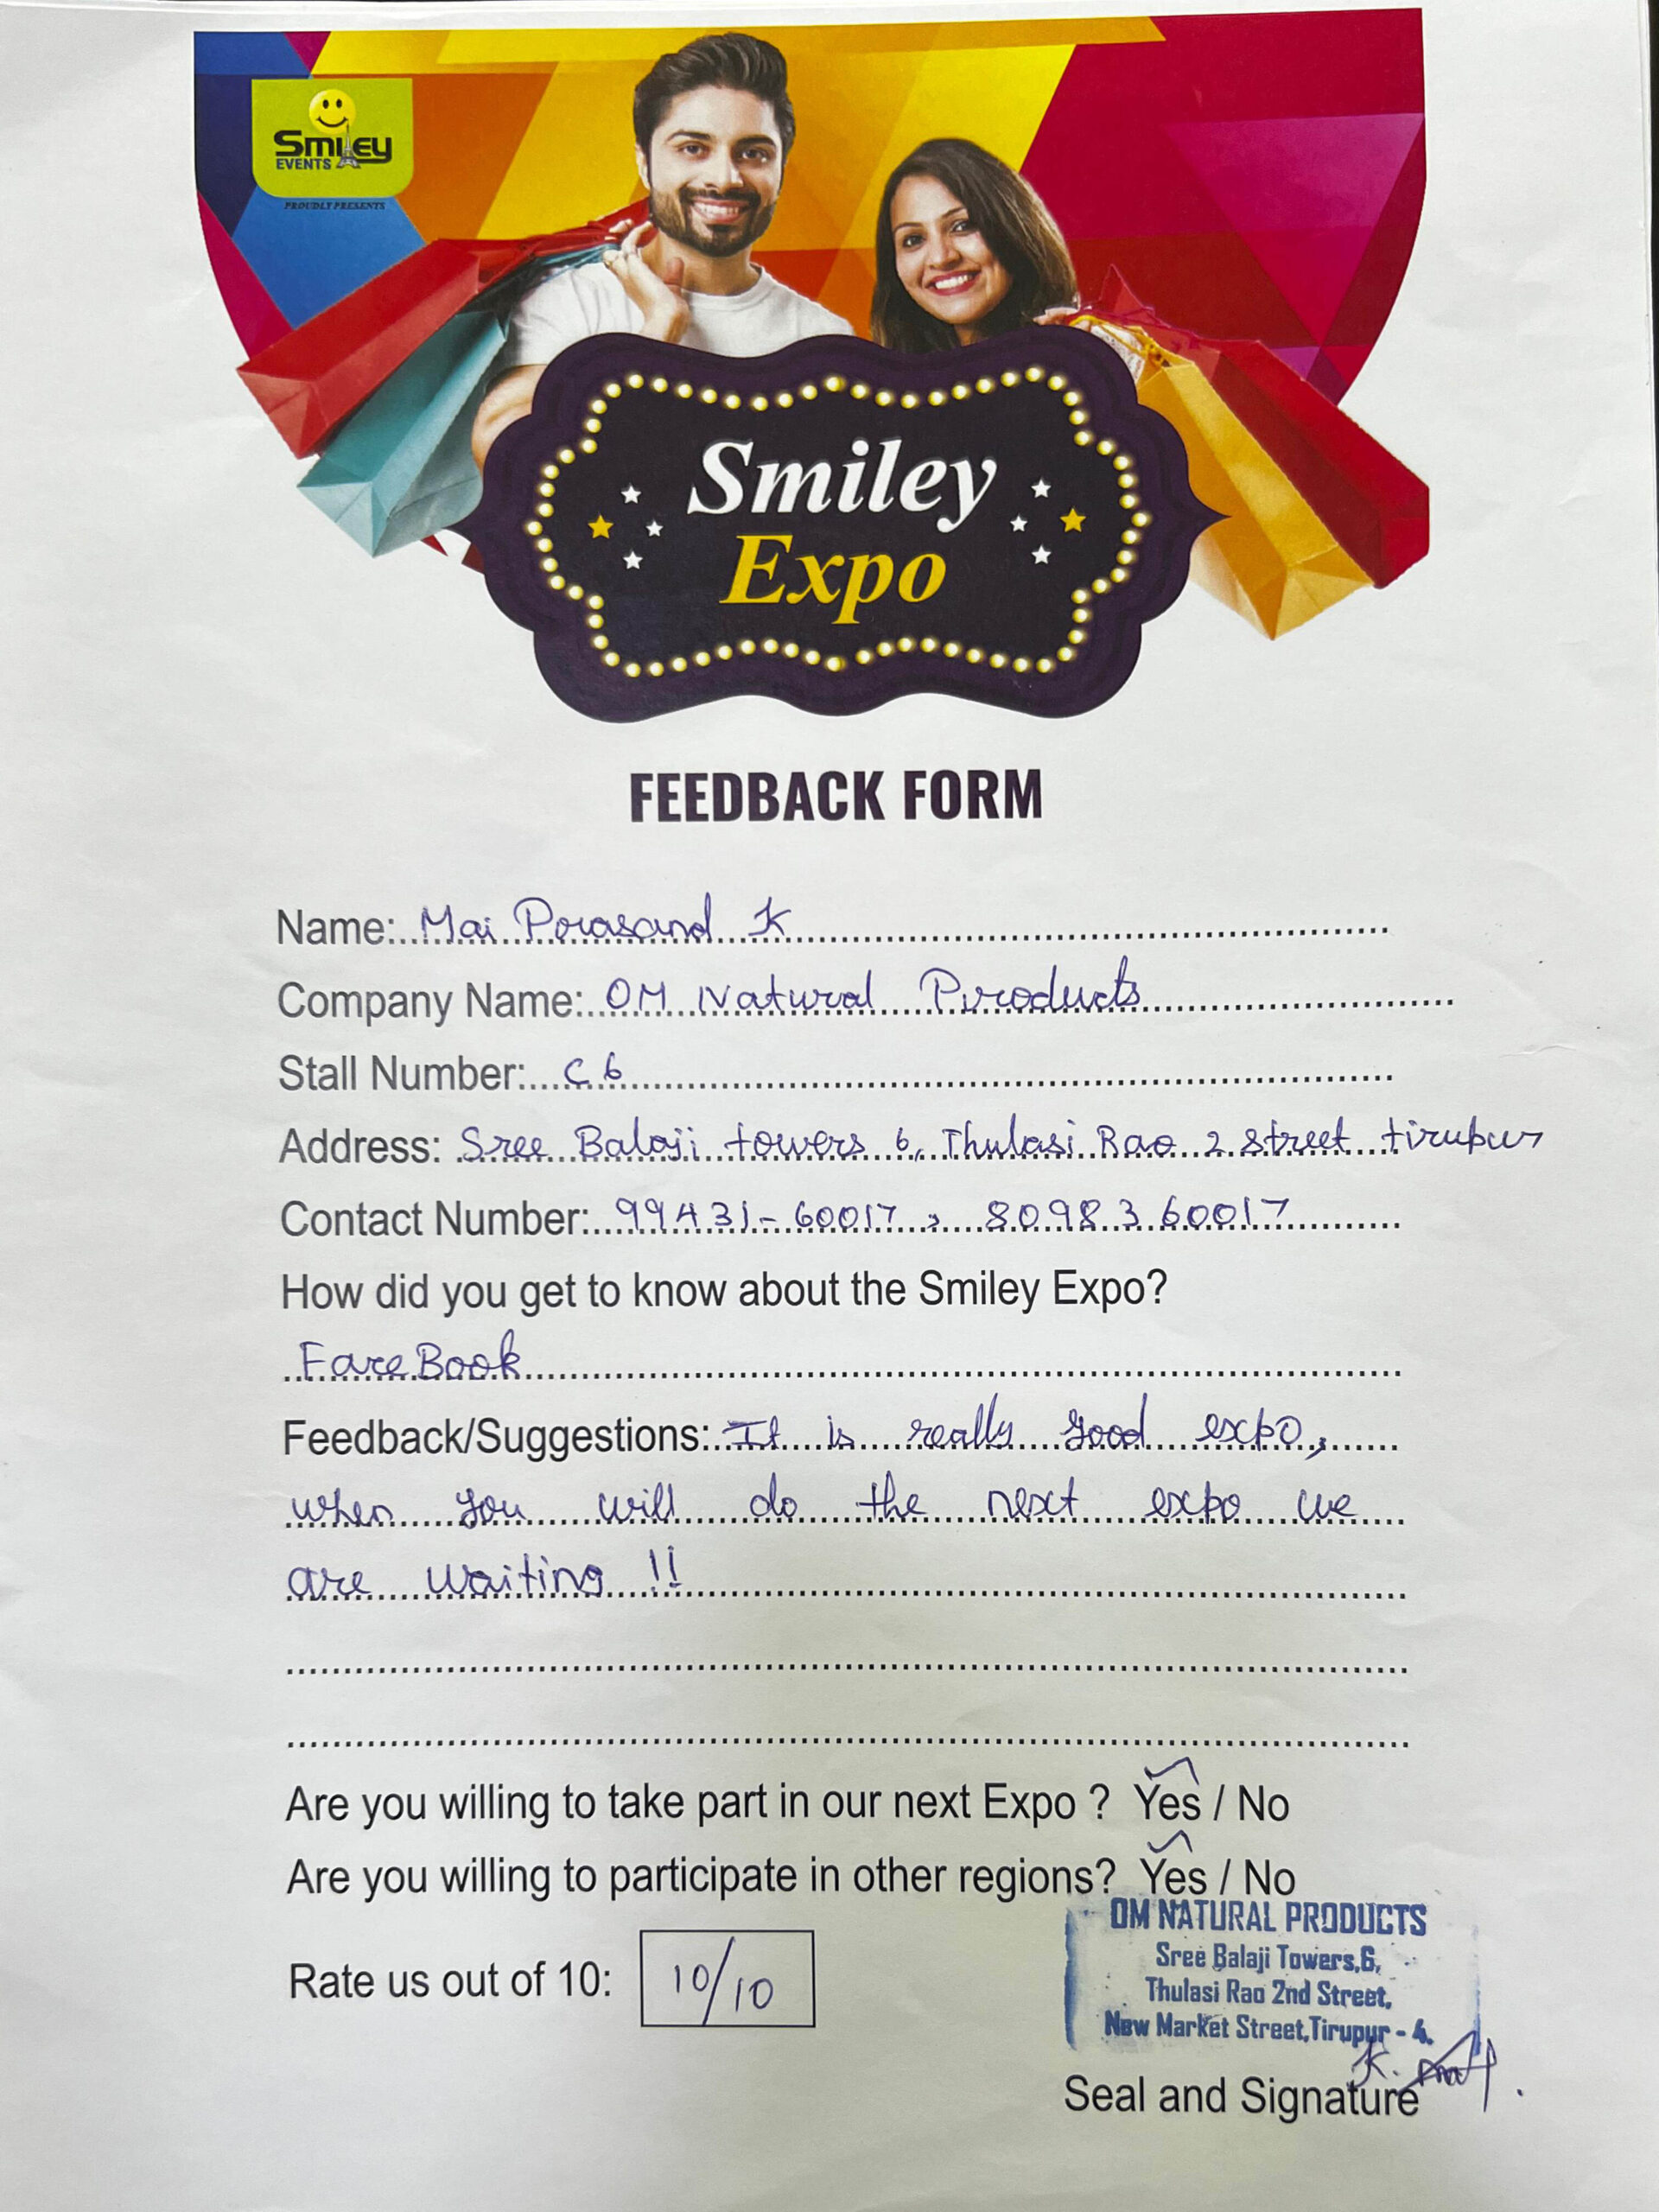 Smiley
EVENTS
PROUDLY PRESENTS
Smiley
Expo
FEEDBACK FORM
Name: Mai Prasand K
Company Name: OM Natural Products
Stall Number: C 6
Address: Sree Balaji towers 6, Thulasi Rao 2 street tirupur
Contact Number: 99431-60017, 80983 60017
How did you get to know about the Smiley Expo?
FaceBook
Feedback/Suggestions: It is really good expo,
when you will do the next expo we
are waiting !!
Are you willing to take part in our next Expo ? Yes / No
Are you willing to participate in other regions? Yes / No
OM NATURAL PRODUCTS
Sree Balaji Towers,6,
Thulasi Rao 2nd Street,
New Market Street,Tirupur - 4.
Rate us out of 10: 10/10
Seal and Signature